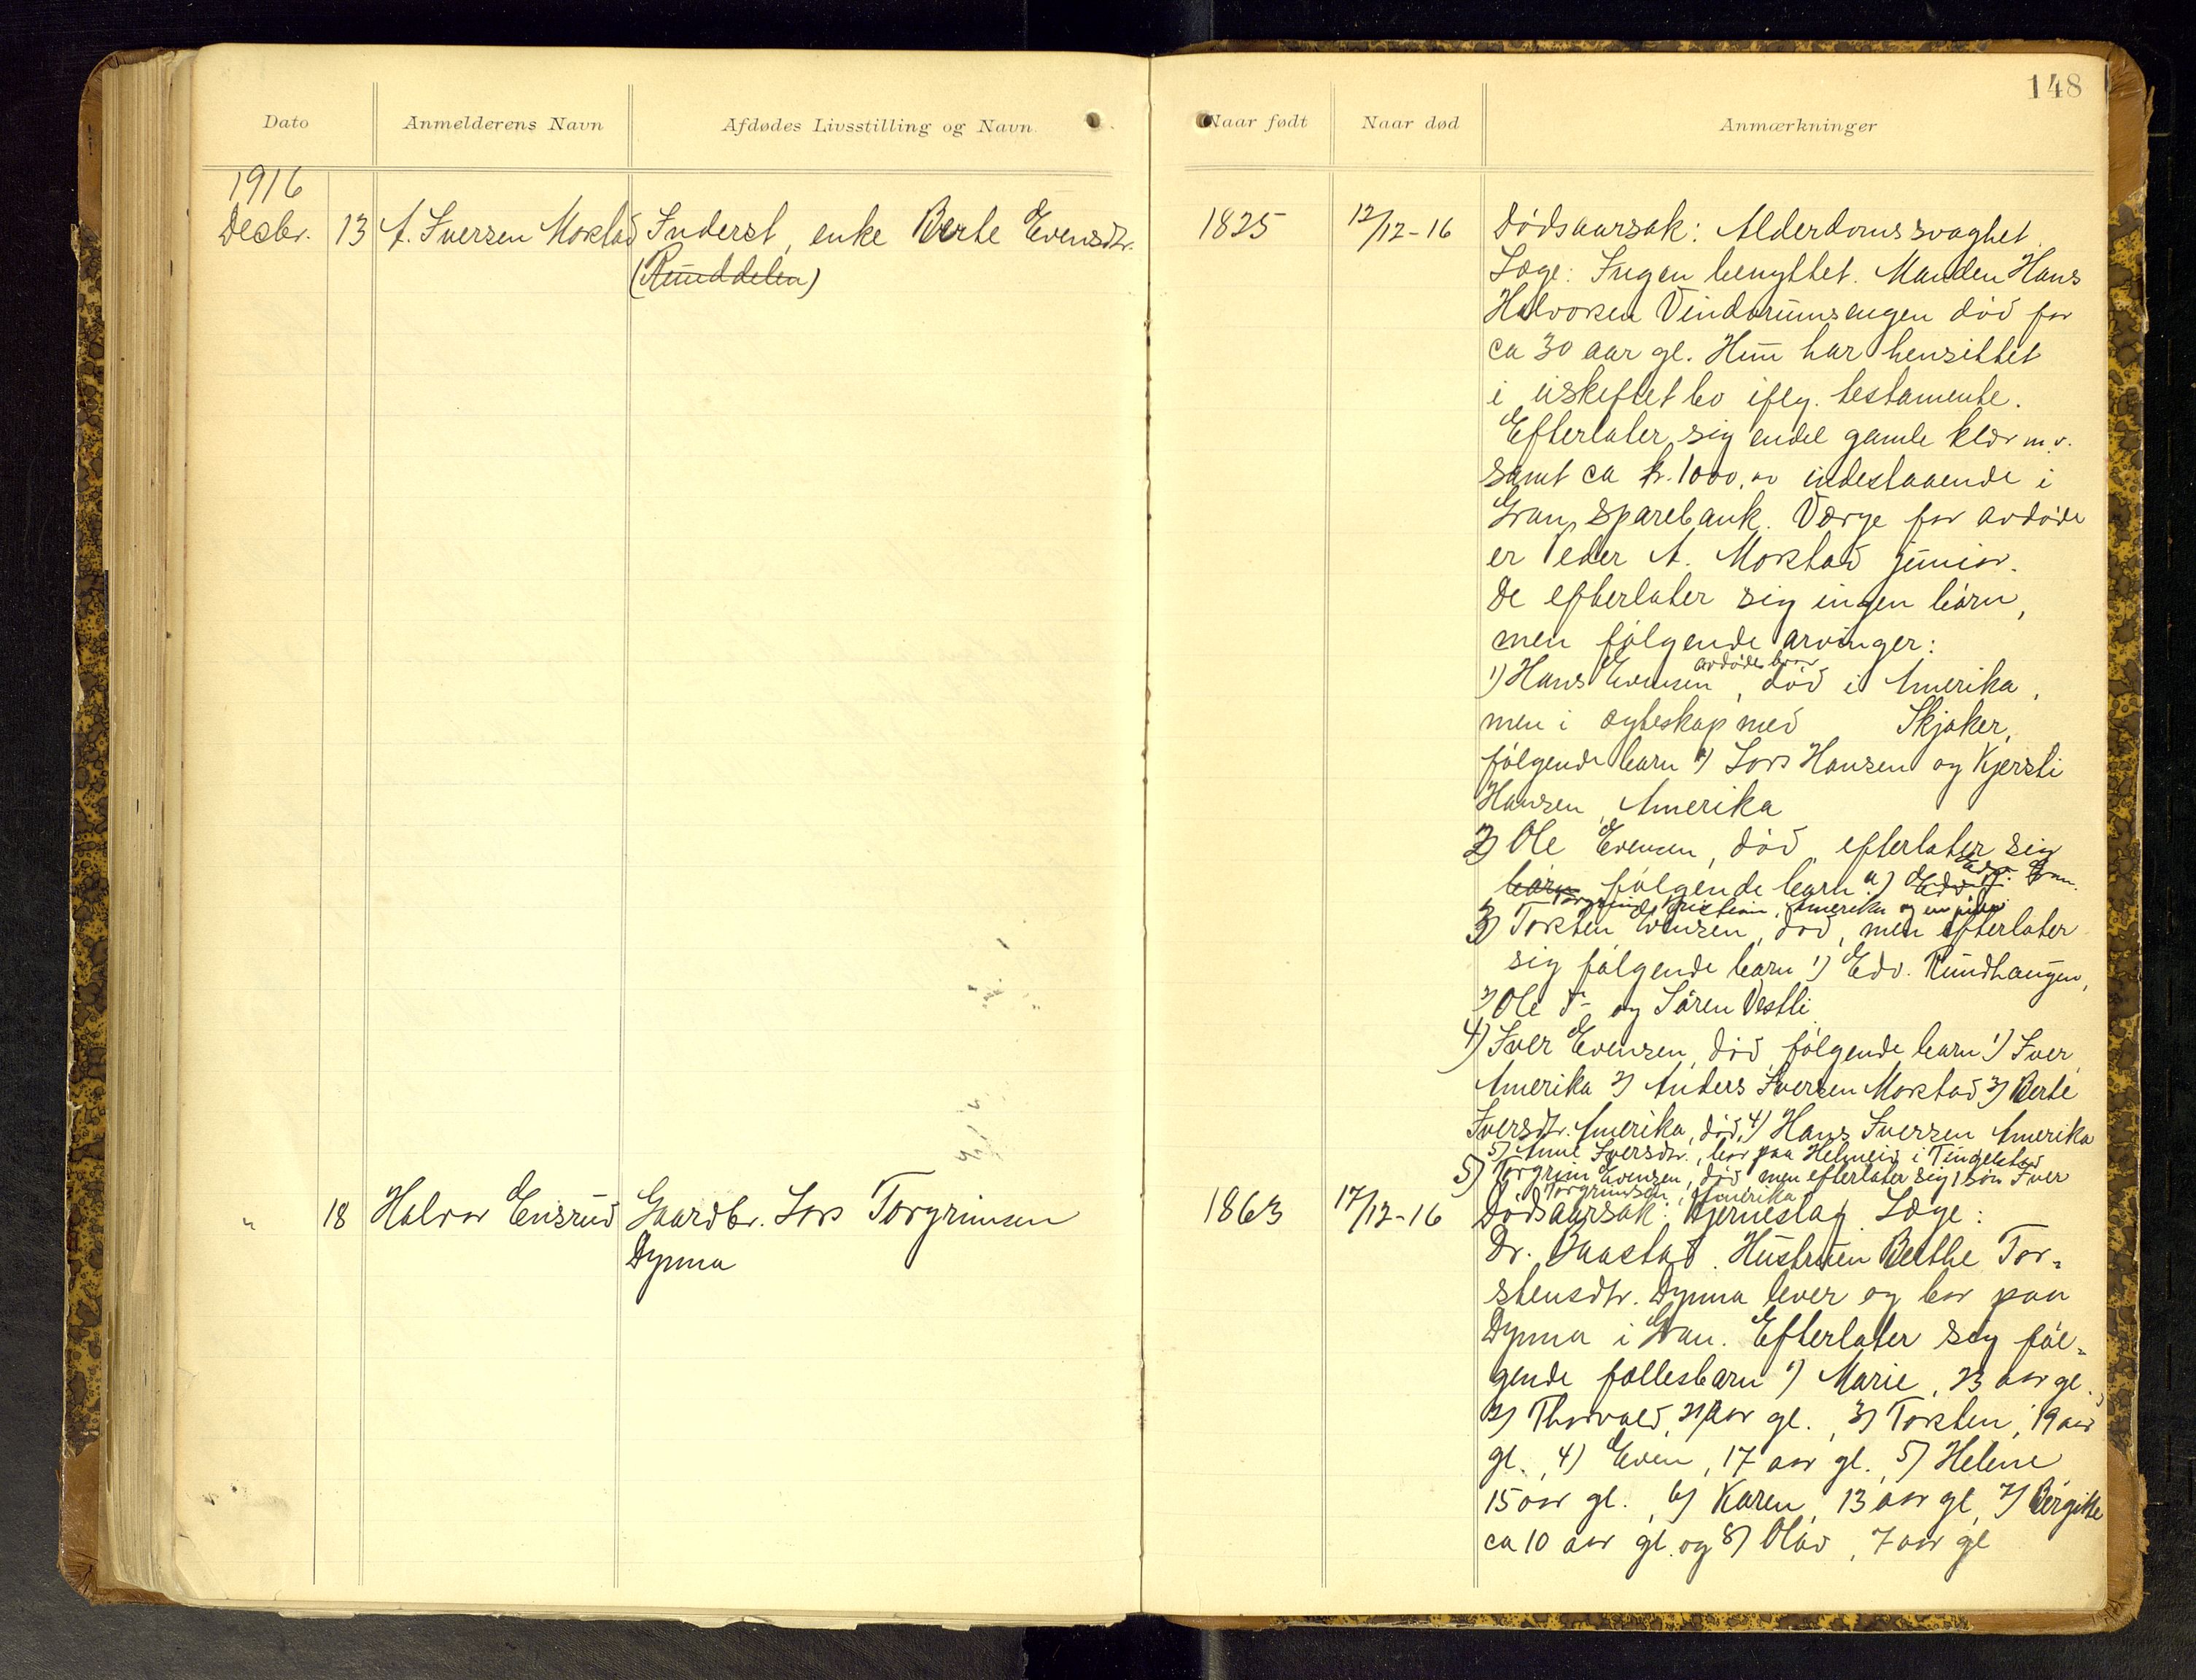 148
Dato
Anmelderens Navn
Afdødes Livsstilling og Navn
Naar født
Naar død
Anmærkninger
1916
Decbr. 13 A. Iversen Morstad Inderst, enke Berte Evensdtr.
(Runddelen)
1825 12/12-16
Dødsaarsak: Alderdomssvaghet.
Læge: Ingen benyttet. Manden Hans
Halvorsen Vindorumsengen død for
ca 30 aar gl. Hun har hensittet
i uskiftet bo iflg. testamente.
Efterlater sig endel gamle klær m.v.
samt ca kr. 1000,00 indestaaende i
Gran Sparebank. Værge for avdøde
er eier A. Morstad junior.
De efterlater sig ingen børn,
men følgende arvinger:
1) Hans Evensen avdødes bror, død i Amerika,
men i ægteskap med Skjaker,
følgende barn a) Lars Hansen og Kjersti
Hansen, Amerika
2) Ole Evensen, død, efterlater sig
barn følgende barn a)
Torgrim, Kristian, Amerika og en pike
3) Torsten Evensen, død, men efterlater
sig følgende barn 1) Edv. Rundhaugen,
2) Ole og Søren Vestli
4) Iver Evensen, død, følgende barn 1) Iver,
Amerika 2) Anders Iversen Morstad 3) Berte
Iversdtr. Amerika, død, 4) Hans Iversen Amerika
5) Anne Iversdr., bor paa Helmeid i Tingelstad
5) Torgrim Evensen, død men efterlater sig 1 søn Iver
Torgrimsen, Amerika
" 18 Halvor Ensrud Gaardbr. Lars Torgrimsen
Dynna
1863 17/12-16
Dødsaarsak: Hjerneslag. Læge:
Dr. Baastad. Hustruen Berthe Tor-
stensdtr. Dynna lever og bor paa
Dynna i Gran. Efterlater sig føl-
gende fællesbarn 1) Marie, 23 aar gl.,
2) Thorvald, 21 aar gl., 3) Torsten, 19 aar
gl., 4) Even, 17 aar gl., 5) Helene
15 aar gl., 6) Karen, 13 aar gl, 7) Birgitte
ca 10 aar gl. og 8) Olav, 7 aar gl